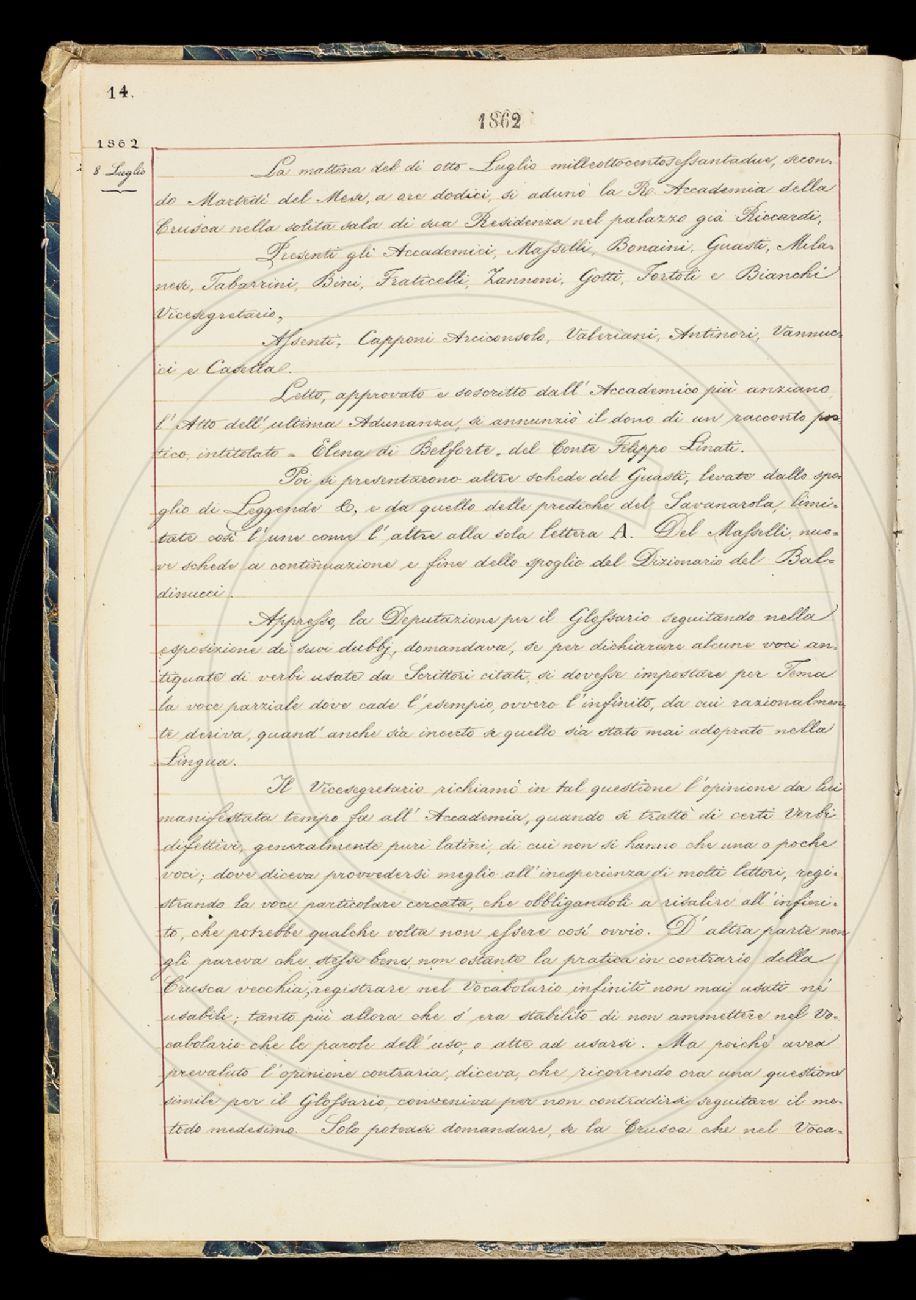 14.
1862
1862
8 Luglio
La mattina del dì otto Luglio milleottocentosessantadue, secon-
do Martedì del Mese, a ore dodici, si adunò la R. Accademia della
Crusca nella solita sala di sua Residenza nel palazzo già Riccardi.
Presenti gli Accademici, Masselli, Bonaini, Guasti, Mila-
nesi, Tabarrini, Bini, Fraticelli, Zannoni, Gotti, Tortoli e Bianchi
Vicesegretario,
Assenti, Capponi Arciconsolo, Valeriani, Antinori, Vannuc-
ci e Casella.
Letto, approvato e soscritto dall' Accademico più anziano,
l' Atto dell' ultima Adunanza, si annunziò il dono di un racconto poe
tico, intitolato = Elena di Belforte = del Conte Filippo Linati.
Poi si presentarono altre schede del Guasti, levate dallo spo-
glio di Leggende &, e da quello delle prediche del Savanarola, limi-
tate così l' une come l' altre alla sola lettera A. Del Masselli, nuo-
ve schede a continuazione e fine dello spoglio del Dizionario del Bal-
dinucci.
Appresso, la Deputazione per il Glossario seguitando nella
esposizione de' suoi dubbj, domandava, se per dichiarare alcune voci an-
tiquate di verbi usate da Scrittori citati, si dovesse impostare per Tema
la voce parziale dove cade l' esempio, ovvero l' infinito, da cui razionalmen-
te deriva, quand' anche sia incerto se quello sia stato mai adoprato nella
Lingua.
Il Vicesegretario richiamò in tal questione l' opinione da lui
manifestata tempo fa all' Accademia, quando si trattò di certi Verbi
difettivi, generalmente puri latini, di cui non si hanno che una o poche
voci; dove diceva provvedersi meglio all' inesperienza di molti lettori, regi-
strando la voce particolare cercata, che obbligandoli a risalire all' infini-
to, che potrebbe qualche volta non essere così ovvio. D' altra parte non
gli pareva che stesse bene, non ostante la pratica in contrario della
Crusca vecchia, registrare nel Vocabolario infiniti non mai usati nè
usabili; tanto più allora che s' era stabilito di non ammettere nel Vo-
cabolario che le parole dell' uso, o atte ad usarsi. Ma poichè avea
prevaluto l' opinione contraria, diceva, che ricorrendo ora una questione
simile per il Glossario, conveniva per non contradirsi seguitare il me-
todo medesimo. Solo poteasi domandare, se la Crusca che nel Voca-